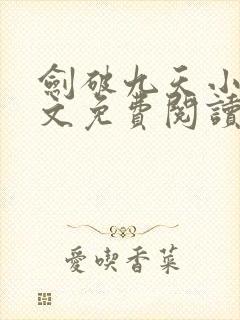 劍破九天小
文免費閱讀
愛喫香菜